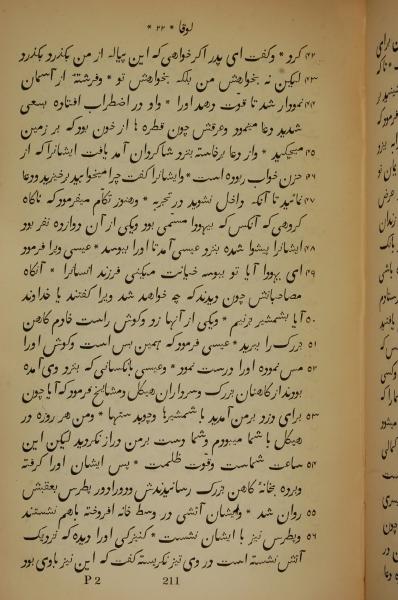 لوقا * ٢٢ *
٤٢ کرد * وگفت ای پدر اگر خواهی که این پیاله از من بگذرد بگذرد
٤٣ لیکن نه بخواهش من بلکه بخواهش تو * وفرشتهٔ از آسمان
٤٤ نمودار شد تا قوت دهد اورا * واو در اضطراب افتاده بسعی
شدید دعا مینمود وعرقش چون قطره ها از خون بود که بر زمین
٤٥ میچکید * واز دعا برخاسته بنزد شاگردان آمد یافت ایشانرا که از
٤٦ حزن خواب ربوده است * وایشانرا گفت چرا میخوابید برخیزید ودعا
٤٧ نمائید تا آنکه داخل نشوید در تجربه * وهنوز تکلّم میفرمود که ناگاه
گروهی که آنکس که بیهودا مسمّی بود ویکی از آن دوازده نفر بود
٤٨ ایشانرا پیشوا شده بنزد عیسی آمد تا اورا ببوسد * عیسی ویرا فرمود
٤٩ ای یهودا آیا تو ببوسه خیانت میکنی فرزند انسانرا * آنگاه
مصاحبانش چون دیدند که چه خواهد شد ویرا گفتند یا خداوند
٥٠ آیا بشمشیر بزنیم * ویکی از آنها زد وگوش راست خادم کاهن
٥١ بزرگ را ببرید * عیسی فرمود که همین بس است وگوش اورا
٥٢ مس نموده اورا درست نمود * وعیسی بآنکسانی که بنزد وی آمده
بودند از کاهنان بزرگ وسرداران هیکل ومشایخ فرمود که آیا چون
٥٣ برای دزد برمن آمدید با شمشیرها وچوب دستها * ومن هر روزه در
هیکل با شما میبودم وشما دست برمن دراز نکردید لیکن این
٥٤ ساعت شماست وقوت ظلمت * پس ایشان اورا گرفته
وبرده بخانهٔ کاهن بزرگ رسانیدندش ودورادور پطرس بعقبش
٥٥ روان شد * وایشان آتشی در وسط خانه افروخته باهم نشستند
٥٦ وپطرس نیز با ایشان نشست * کنیزکی اورا دیده که نزدیک
آتش نشسته است در وی تیز نگریسته گفت که این نیز باوی بود
P 2 211